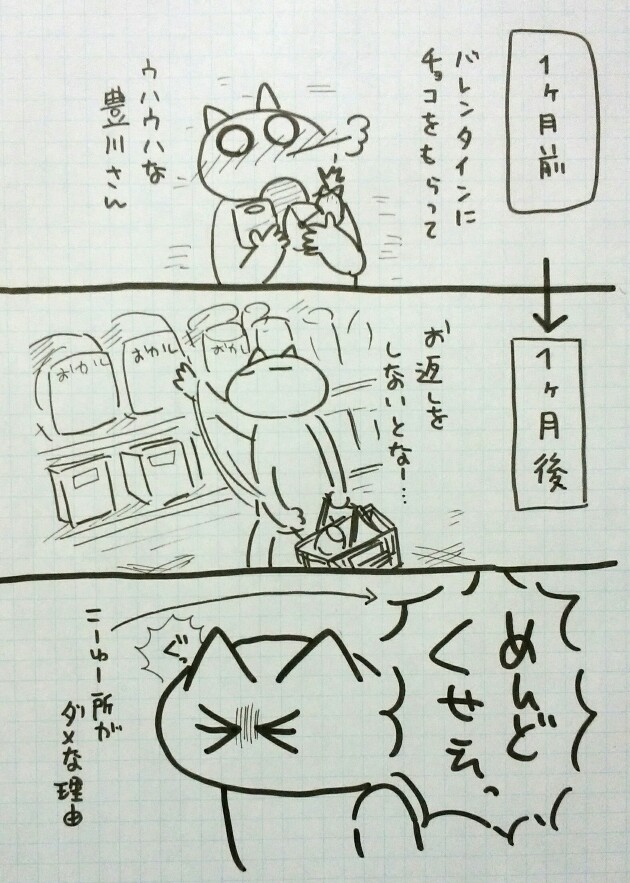 1ヶ月前
バレンタインに
チョコをもらって
ウハウハな
豊川さん
1ヶ月後
お返しを
しないとなー…
おかし
おかし
おかし
めんど
くせえっ
ぐっ
こーゆー所が
ダメな理由